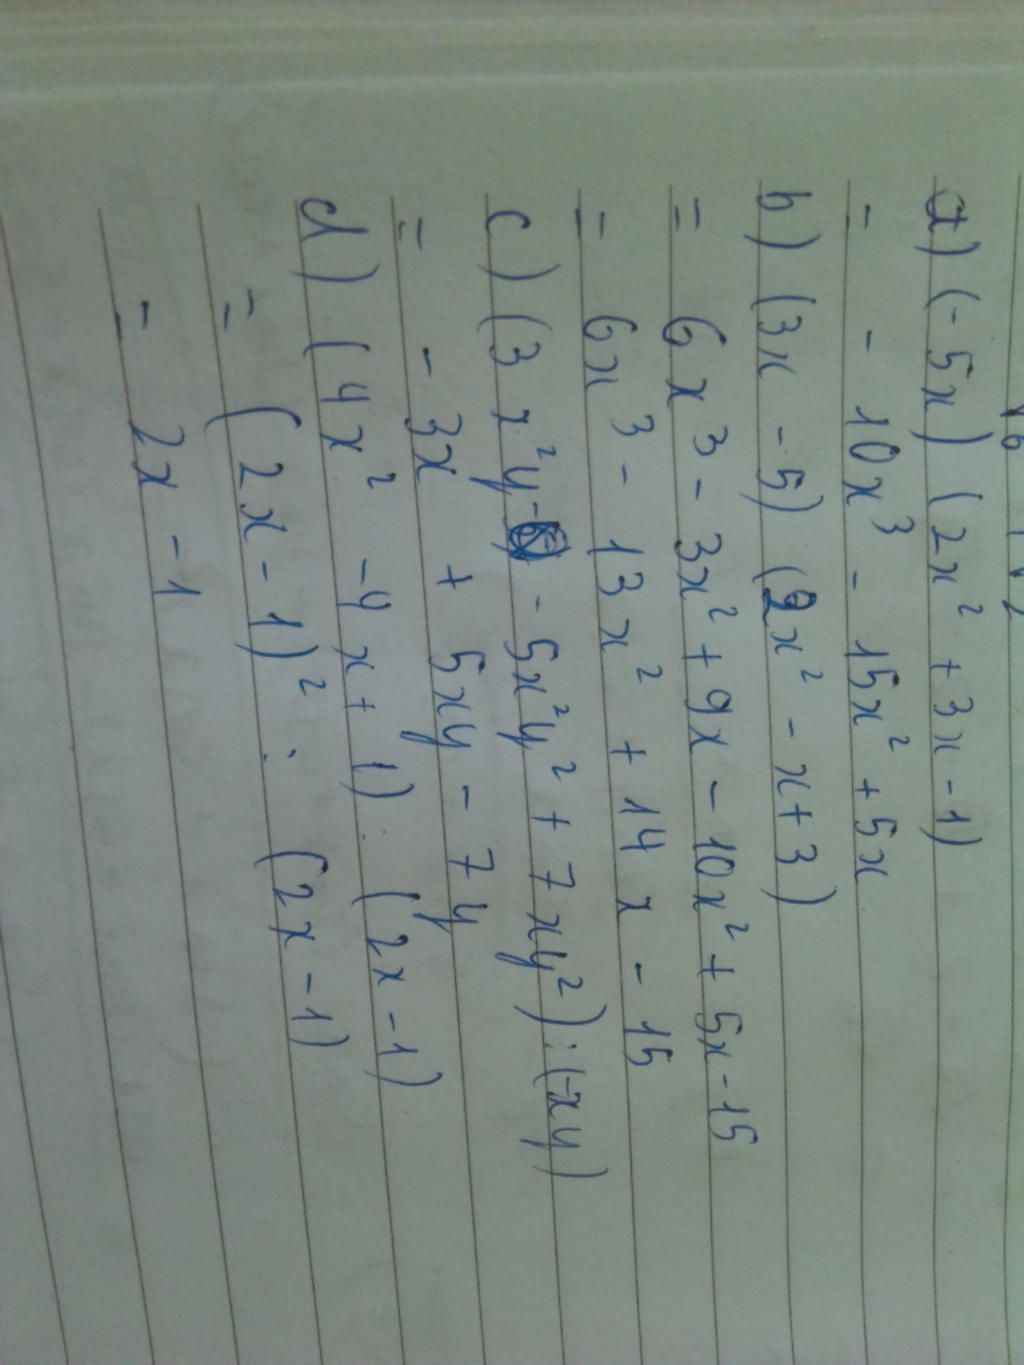 a) (-5x) (2x² + 3x - 1)
= - 10x³ - 15x² + 5x
b) (3x - 5) (2x² - x + 3)
= 6x³ - 3x² + 9x - 10x² + 5x - 15
= 6x³ - 13x² + 14x - 15
c) (3x²y - 5x²y² + 7xy²) : (-xy)
= - 3x + 5xy - 7y
d) (4x² - 4x + 1) : (2x - 1)
= (2x - 1)² : (2x - 1)
= 2x - 1